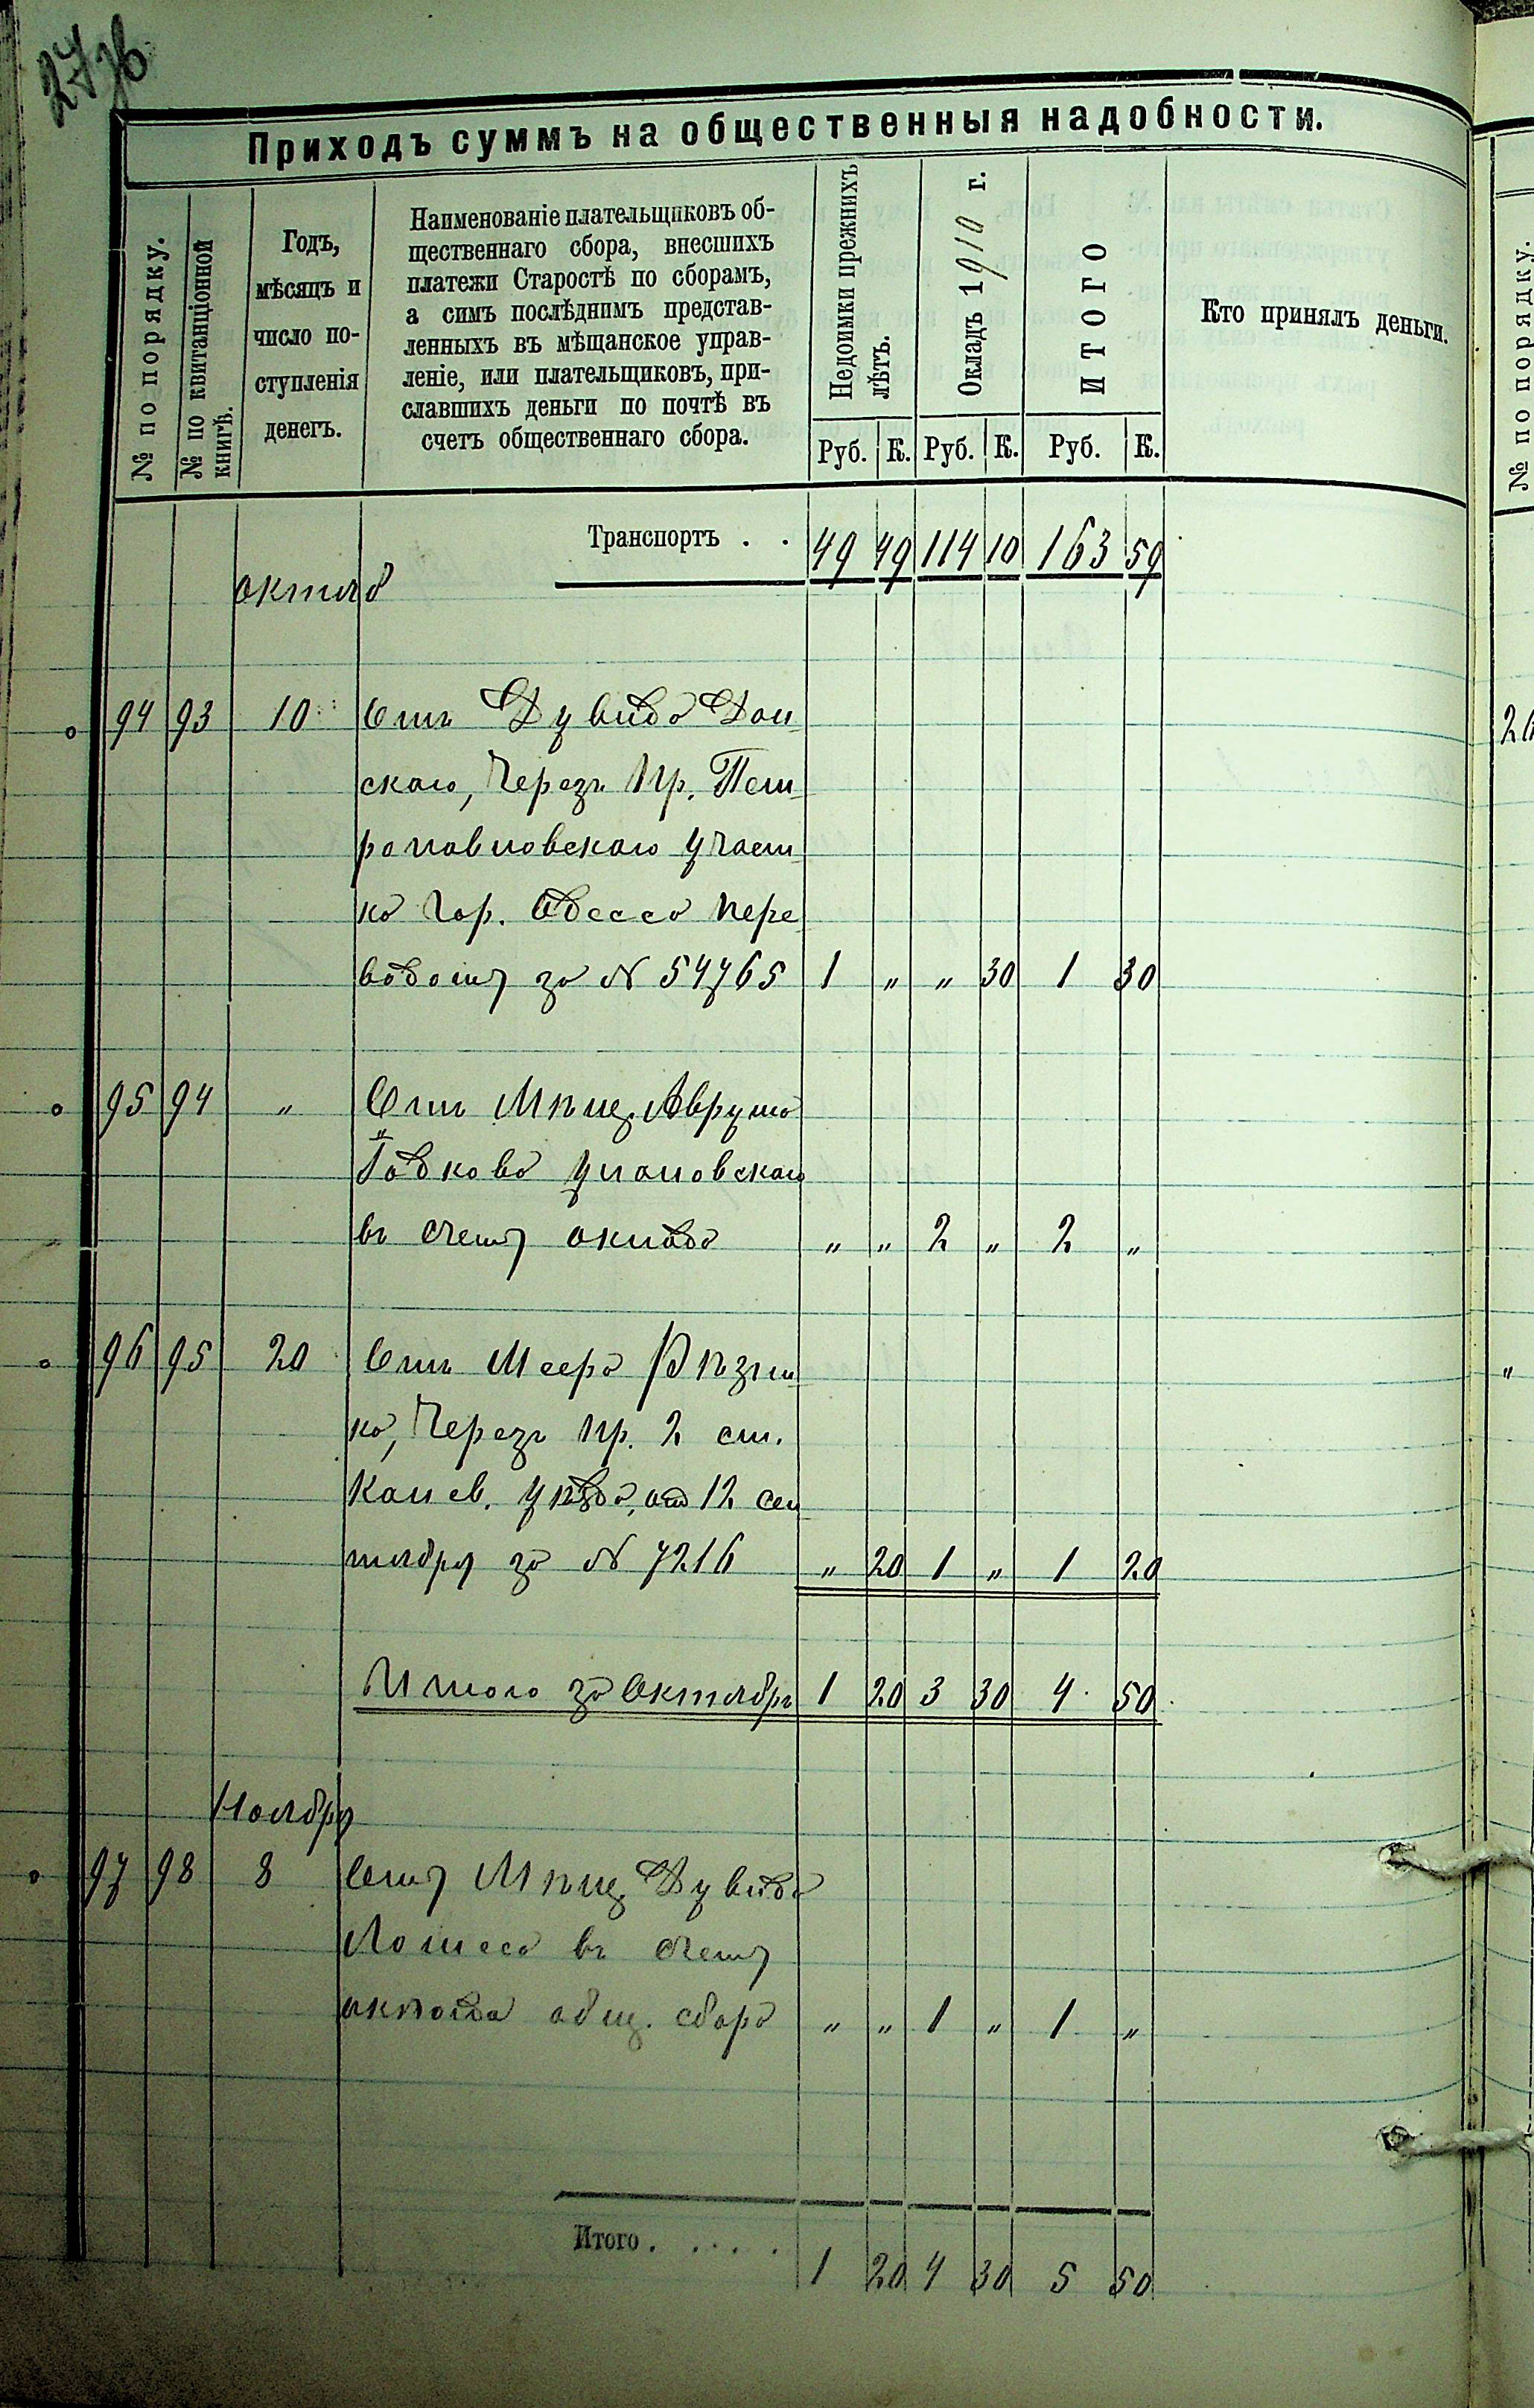 Приходъ суммъ на общественныя надобности.
№ по порядку.
№ по квитанціонной
книгѣ.
Годъ,
мѣсяцъ и
число по-
ступленія
денегъ.
Наименованіе плательщиковъ об-
щественнаго сбора, внесшихъ
платежи Старостѣ по сборамъ,
а симъ послѣднимъ представ-
ленныхъ въ мѣщанское управ-
леніе, или плательщиковъ, при-
славшихъ деньги по почтѣ въ
счетъ общественнаго сбора.
Недоимки прежнихъ
лѣтъ.
Окладъ 1910 г.
ИТОГО
Кто принялъ деньги.
Руб. К. Руб. К. Руб. К.
Транспортъ . . 49 49 114 10 163 59
октяб
94 93 10 Отъ Дувида
скаго, Через Пр. Пет
ропавловскаго участ
ка Гор. Одесса пере
водомъ за № 54765 1 „ „ 30 1 30
95 94 „ Отъ Мѣщ. Аврума
Улановскаго
въ счетъ оклада „ „ 2 „ 2 „
96 95 20 Отъ Меера Рѣзни
ка, Черезъ Пр. 2 ст.
Канев. уѣзда, от 12 сен
тября за № 7216 „ 20 1 „ 1 20
Итого за Октябрь 1 20 3 30 4 50
Ноября
97 98 8 Отъ Мѣщ. Дувида
въ счетъ
оклада общ. сбора „ „ 1 „ 1 „
Итого . . . . . 1 20 4 30 5 50
№ по порядку.